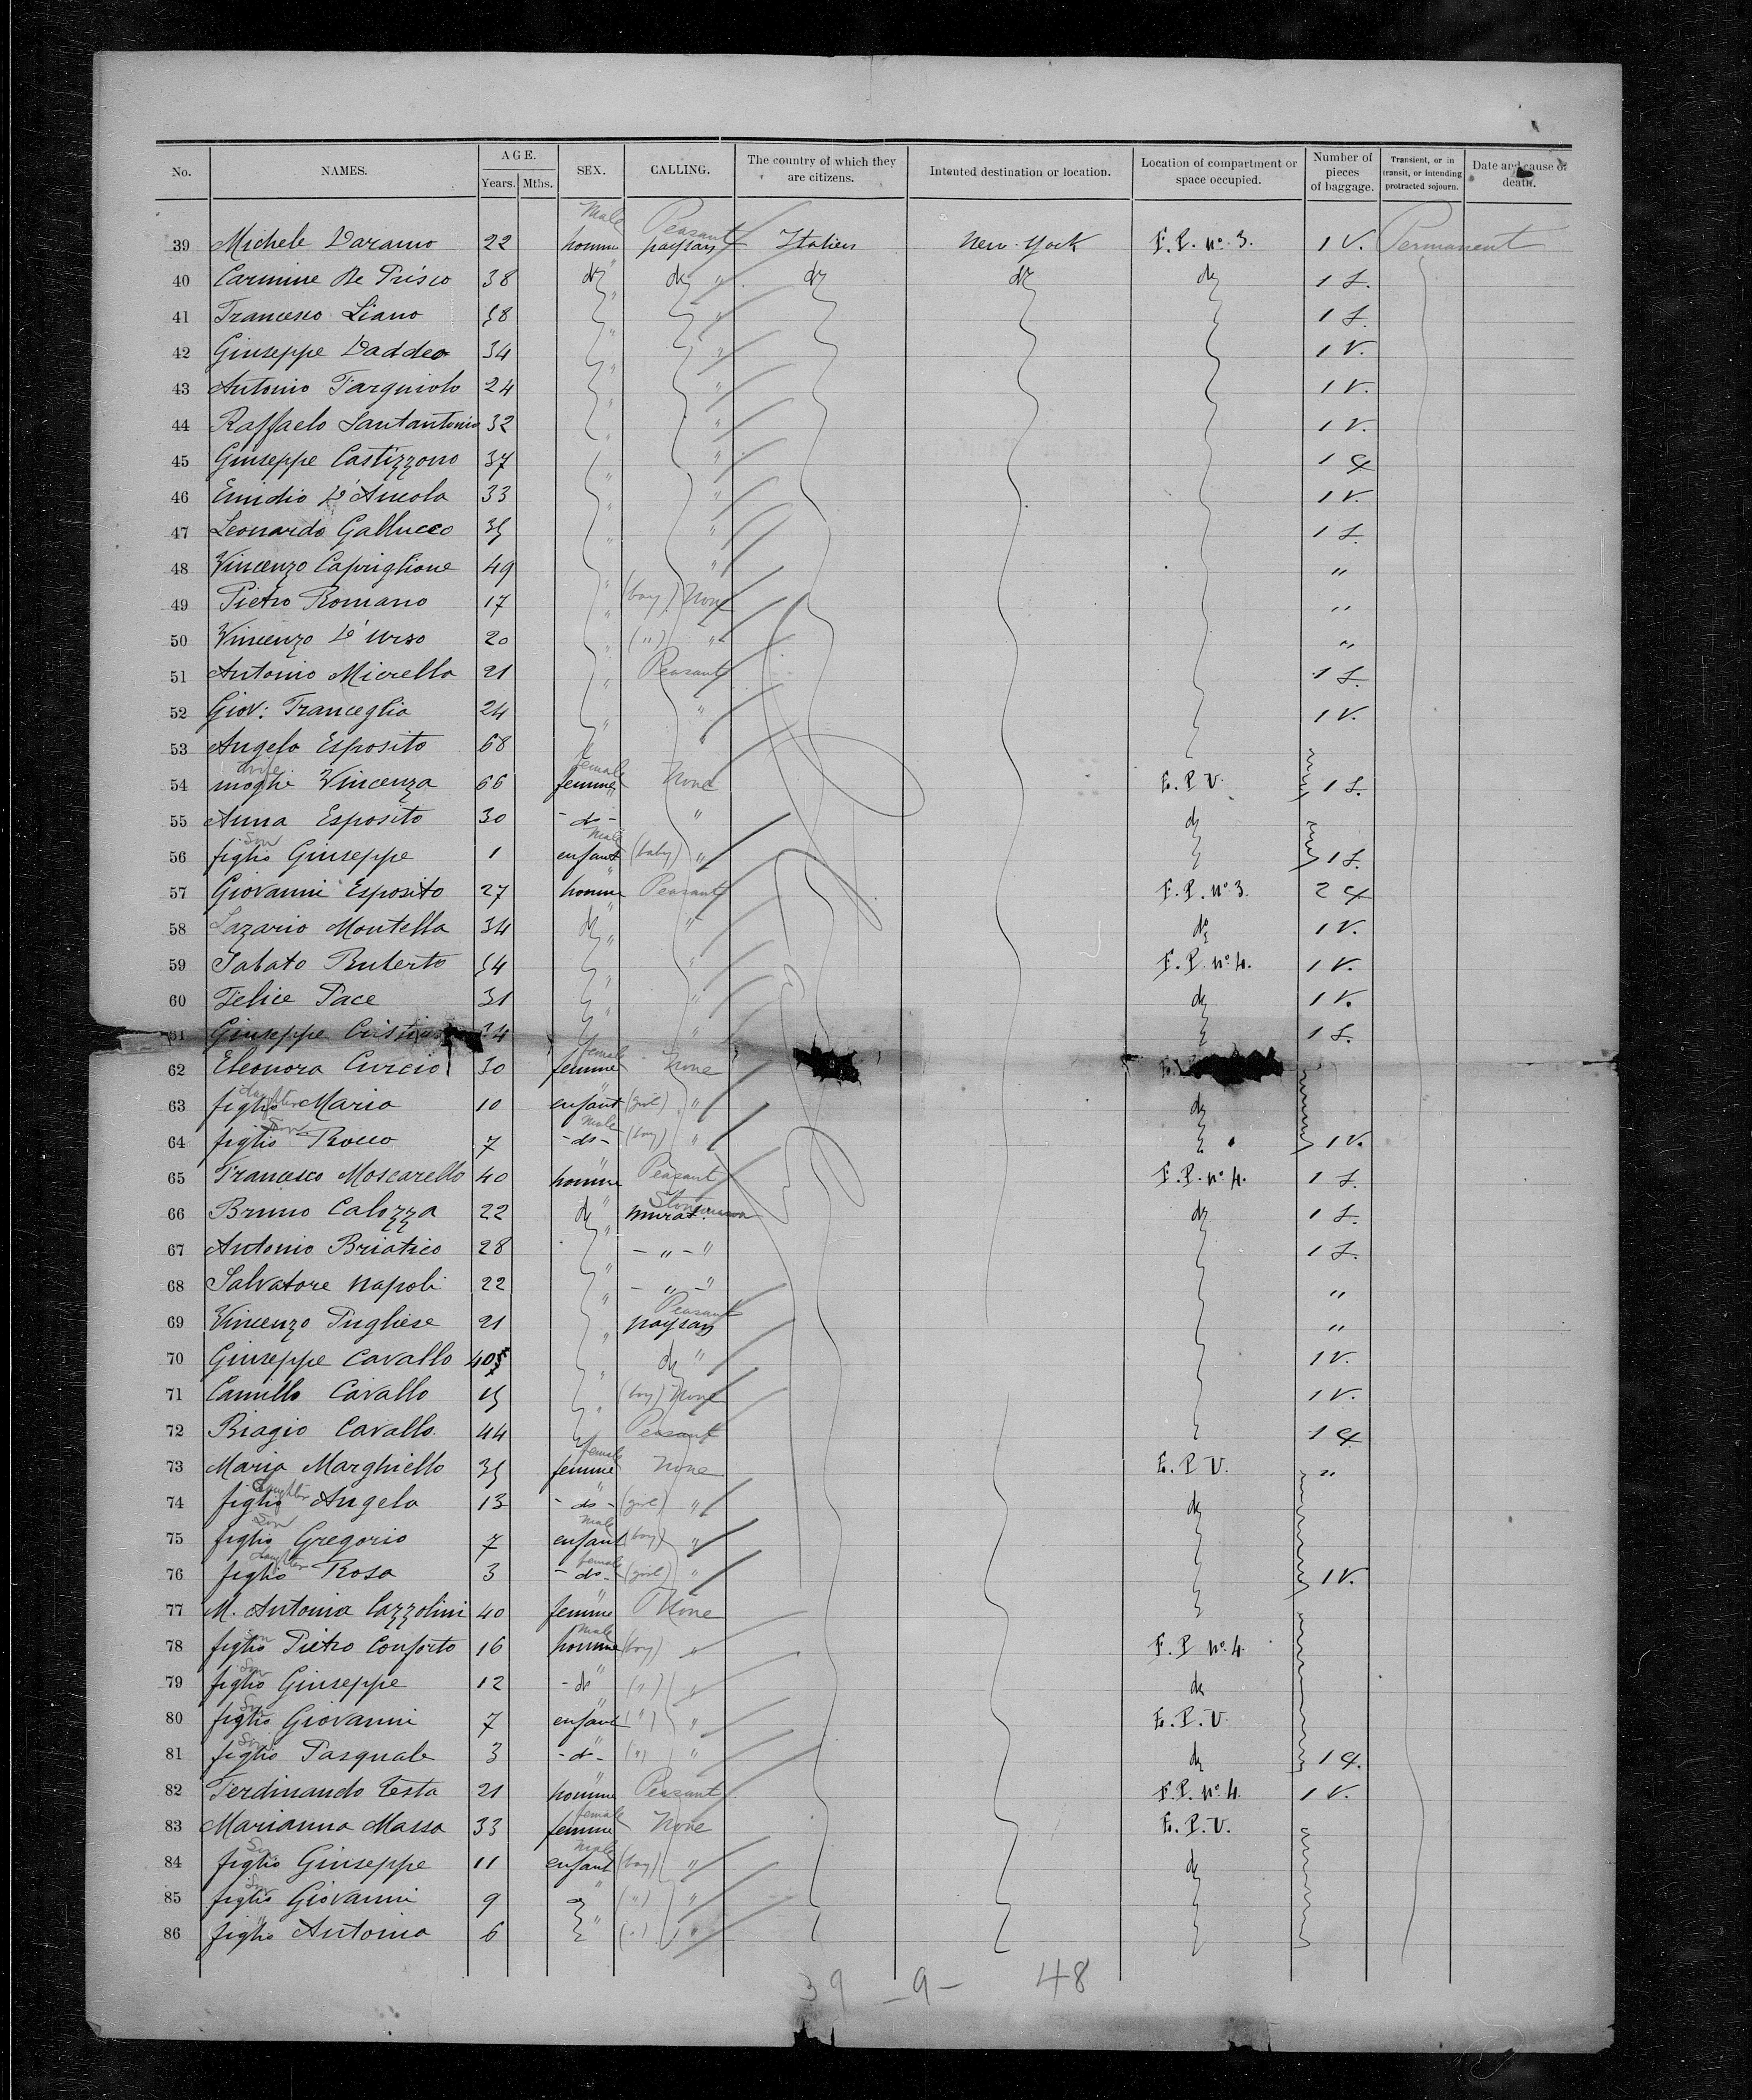 No. NAMES. AGE. Years. Mths. SEX. CALLING. The country of which they are citizens. Intented destination or location. Location of compartment or space occupied. Number of pieces of baggage. Transient, or in transit, or intending protracted sojourn. Date and cause of death.
Male Peasant
39 Michele Daramo 22 homme paysan Italien New-York F.P. nº 3. 1 V. Permanent
40 Carmine De Prisco 38 do do " do do do 1 S.
41 Francesco Liano 38 " " 1 S.
42 Giuseppe Daddeo 34 " " 1 V.
43 Antonio Targuiolo 24 " " 1 V.
44 Raffaelo Santantonio 32 " " 1 V.
45 Giuseppe Castizzono 37 " 1 4
46 Emidio D'Ancola 33 " " 1 V.
47 Leonardo Gallucco 35 " " 1 S.
48 Vincenzo Capriglione 49 " "
49 Pietro Romano 17 " (boy) None "
50 Vincenzo D'Urso 20 " (") " "
51 Antonio Micrella 21 " Peasant 1 S.
52 Giov: Franceglia 24 " " 1 V.
53 Angelo Esposito 68 "
wife female
54 moglie Vincenza 66 femme None E.P.V. 1 S.
55 Anna Esposito 30 - do - " do
Son Male
56 figlio Giuseppe 1 enfant (baby) " 1 S.
57 Giovanni Esposito 27 homme Peasant F.P. nº 3. 2 4
58 Lazario Montella 34 do " " do 1 V.
59 Sabato Ruberto 54 " " F.P. nº 4. 1 V.
60 Felice Pace 31 " " do 1 V.
61 Giuseppe 34 " 1 S.
female
62 Eleonora Curcio 30 femme None E.
daughter
63 figlio Maria 10 enfant (girl) " do
Son Male
64 figlio Rocco 7 - do - (boy) " 1 V.
65 Francesco Moscarello 40 homme Peasant F.P. nº 4. 1 S.
Stonemason
66 Bruno Calozza 22 do " murat. do 1 S.
67 Antonio Briatico 28 " - " - " 1 S.
68 Salvatore Napoli 22 " - " - " "
Peasant
69 Vincenzo Pugliese 21 " paysan "
70 Giuseppe Cavallo 40 " do " 1 V.
71 Camillo Cavallo 15 " (boy) None 1 V.
72 Biagio Cavallo. 44 Peasant 1 4
female
73 Maria Marghiello 35 femme None E.P.V. "
daughter
74 figlio Angela 13 - do - (girl) " do
Son Male
75 figlio Gregorio 7 enfant (boy) "
daughter female
76 figlio Rosa 3 - do - (girl) " 1 V.
77 M. Antonia Cazzolini 40 femme None
Son Male
78 figlio Pietro Conforto 16 homme (boy) " F.P. nº 4.
Son
79 figlio Giuseppe 12 - do " (") " do
Son
80 figlio Giovanni 7 enfant " (") " E.P.V.
Son
81 figlio Pasquale 3 - do - (") " do 1 4.
82 Ferdinando Testa 21 homme Peasant F.P. nº 4. 1 V.
female
83 Marianna Massa 33 femme None E.P.V.
Son Male
84 figlio Giuseppe 11 enfant (boy) " do
Son
85 figlio Giovanni 9 do " (") "
86 figlio Antonio 6 " (") "
39 - 9 - 48